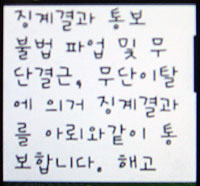 징계결과 통보
불법 파업 및 무
단결근, 무단이탈
에 의거 징계결과
를 아뢰와같이 통
보합니다. 해고